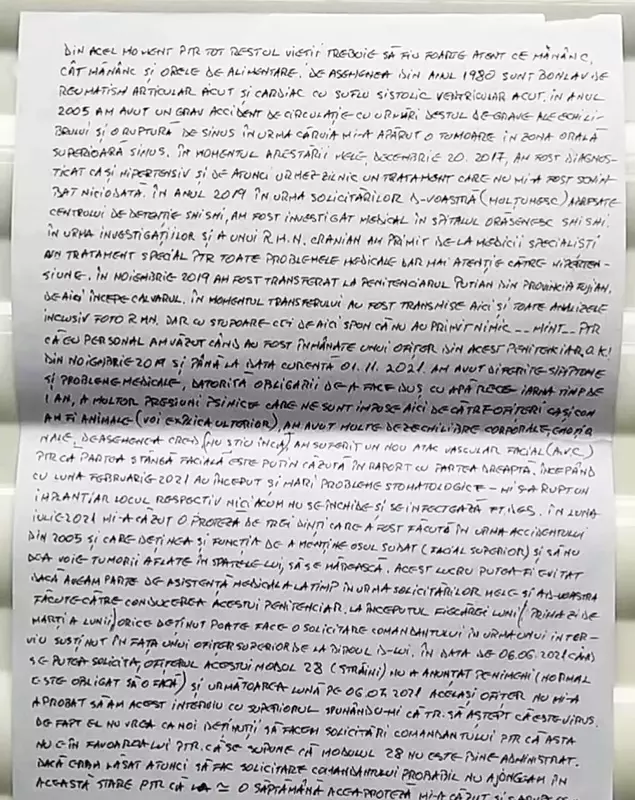 DIN ACEL MOMENT PTR TOT RESTUL VIEȚII TREBUIE SĂ FIU FOARTE ATENT CE MĂNÂNC,
CÂT MĂNÂNC ȘI ORELE DE ALIMENTARE. DE ASEMENEA DIN ANUL 1980 SUNT BONLAV DE
REUMATISM ARTICULAR ACUT ȘI CARDIAC CU SUFLU SISTOLIC VENTRICULAR ACUT. IN ANUL
2005 AM AVUT UN GRAV ACCIDENT DE CIRCULAȚIE CU URMĂRI DESTUL DE GRAVE ALE ECHILI-
BRULUI ȘI O RUPTURĂ DE SINUS ÎN URMA CĂRUIA MI-A APĂRUT O TUMOARE IN ZONA ORALĂ
SUPERIOARĂ SINUS. ÎN MOMENTUL ARESTĂRII MELE, DECEMBRIE 20. 2017, AM FOST DIAGNOS-
TICAT CA ȘI HIPERTENSIV ȘI DE ATUNCI URMEZ ZILNIC UN TRATAMENT CARE NU MI-A FOST SCHIM-
BAT NICIODATĂ. ÎN ANUL 2019 ÎN URMA SOLICITĂRILOR D-VOASTRĂ (MULȚUMESC) ADRESATE
CENTRULUI DE DETENȚIE SHISHI, AM FOST INVESTIGAT MEDICAL ÎN SPITALUL ORĂȘENESC SHISHI.
ÎN URMA INVESTIGAȚIILOR ȘI A UNUI R.M.N. CRANIAN AM PRIMIT DE LA MEDICII SPECIALIȘTI
UN TRATAMENT SPECIAL PTR TOATE PROBLEMELE MEDICALE DAR MAI ATENȚIE CĂTRE HIPERTEN-
SIUNE. ÎN NOIEMBRIE 2019 AM FOST TRANSFERAT LA PENITENCIARUL PUTIAN DIN PROVINCIA FUJIAN.
DE AICI ÎNCEPE CALVARUL. ÎN MOMENTUL TRANSFERULUI AU FOST TRANSMISE AICI ȘI TOATE ANALIZELE
INCLUSIV FOTO RMN. DAR CU STUPOARE CEI DE AICI SPUN CĂ NU AU PRIMIT NIMIC -- MINT -- PTR
CĂ EU PERSONAL AM VĂZUT CÂND AU FOST ÎNMÂNATE UNUI OFIȚER DIN ACEST PENITENCIAR, O.K!
DIN NOIEMBRIE 2019 ȘI PÂNĂ LA DATA CURENTĂ 01. 11. 2021. AM AVUT DIFERITE SIMPTOME
ȘI PROBLEME MEDICALE, DATORITA OBLIGARII DE A FACE DUȘ CU APĂ RECE IARNA TIMP DE
1 AN, A MULTOR PRESIUNI PSIHICE CARE NE SUNT IMPUSE AICI DE CĂTRE OFIȚERI CA ȘI CUM
AM FI ANIMALE (VOI EXPLICA ULTERIOR), AM AVUT MULTE DEZECHILIBRE CORPORALE, EMOȚIO
NALE, DEASEMENEA CRED (NU ȘTIU ÎNCĂ) AM SUFERIT UN NOU ATAC VASCULAR FACIAL (AVC)
PTR CĂ PARTEA STÂNGĂ FACIALĂ ESTE PUTIN CĂZUTĂ ÎN RAPORT CU PARTEA DREAPTĂ. ÎNCEPÂND
CU LUNA FEBRUARIE 2021 AU ÎNCEPUT ȘI MARI PROBLEME STOMATOLOGICE - MI S-A RUPT UN
IMPLANT IAR LOCUL RESPECTIV NICI ACUM NU SE ÎNCHIDE ȘI SE INFECTEAZĂ DES. ÎN LUNA
IULIE 2021 MI-A CĂZUT O PROTEZĂ DE TREI DINȚI CARE A FOST FĂCUTĂ ÎN URMA ACCIDENTULUI
DIN 2005 ȘI CARE DEȚINEA ȘI FUNCȚIA DE A MENȚINE OSUL SUDAT (FACIAL SUPERIOR) ȘI SĂ NU
DEA VOIE TUMORII AFLATE ÎN SPATELE LUI, SĂ SE MĂREASCĂ. ACEST LUCRU PUTEA FI EVITAT
DACĂ AVEAM PARTE DE ASISTENȚĂ MEDICALĂ LA TIMP ÎN URMA SOLICITĂRILOR MELE ȘI A D-VOASTRA
FĂCUTE CĂTRE CONDUCEREA ACESTUI PENITENCIAR. LA ÎNCEPUTUL FIECĂREI LUNI (PRIMA ZI DE
MARȚI A LUNII) ORICE DEȚINUT POATE FACE O SOLICITARE COMANDANTULUI ÎN URMA UNUI INTER-
VIU SUSȚINUT ÎN FAȚA UNUI OFIȚER SUPERIOR DE LA BIROUL D-LUI. ÎN DATA DE 06.06.2021 CÂND
SE PUTEA SOLICITA, OFIȚERUL ACESTUI MODUL 28 (STRĂINI) NU A ANUNȚAT PE NIMENI (NORMAL
ESTE OBLIGAT SĂ O FACĂ) ȘI URMĂTOAREA LUNĂ PE 06.07.2021 ACELAȘI OFIȚER NU MI-A
APROBAT SĂ AM ACEST INTERVIU CU SUPERIORUL SPUNÂNDU-MI CĂ TR. SĂ AȘTEPT CĂ ESTE VIRUS.
DE FAPT EL NU VREA CA NOI DEȚINUȚII SĂ FACEM SOLICITĂRI COMANDANTULUI PTR CĂ ASTA
NU E ÎN FAVOAREA LUI PTR. CĂ SE SUPUNE CĂ MODULUL 28 NU ESTE BINE ADMINISTRAT.
DACĂ ERAM LASAT ATUNCI SĂ FAC SOLICITARE COMANDANTULUI PROBABIL NU AJUNGEAM ÎN
ACEASTĂ STARE PTR CĂ LA ≃ O SĂPTĂMÂNĂ ACEA PROTEZĂ MI-A CĂZUT ȘI